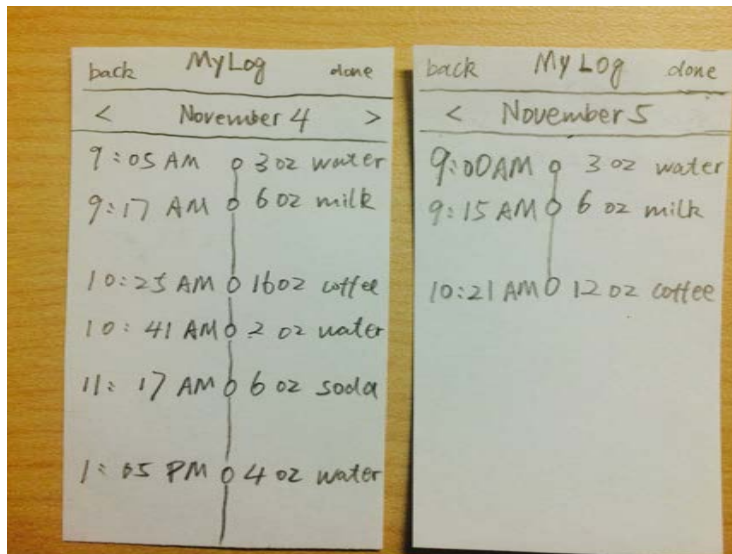 back MyLog done
< November 4 >
9:05 AM 3 oz water
9:17 AM 6 oz milk
10:25 AM 16 oz coffee
10:41 AM 2 oz water
11:17 AM 6 oz soda
1:05 PM 4 oz water
back MyLog done
< November 5
9:00 AM 3 oz water
9:15 AM 6 oz milk
10:21 AM 12 oz coffee